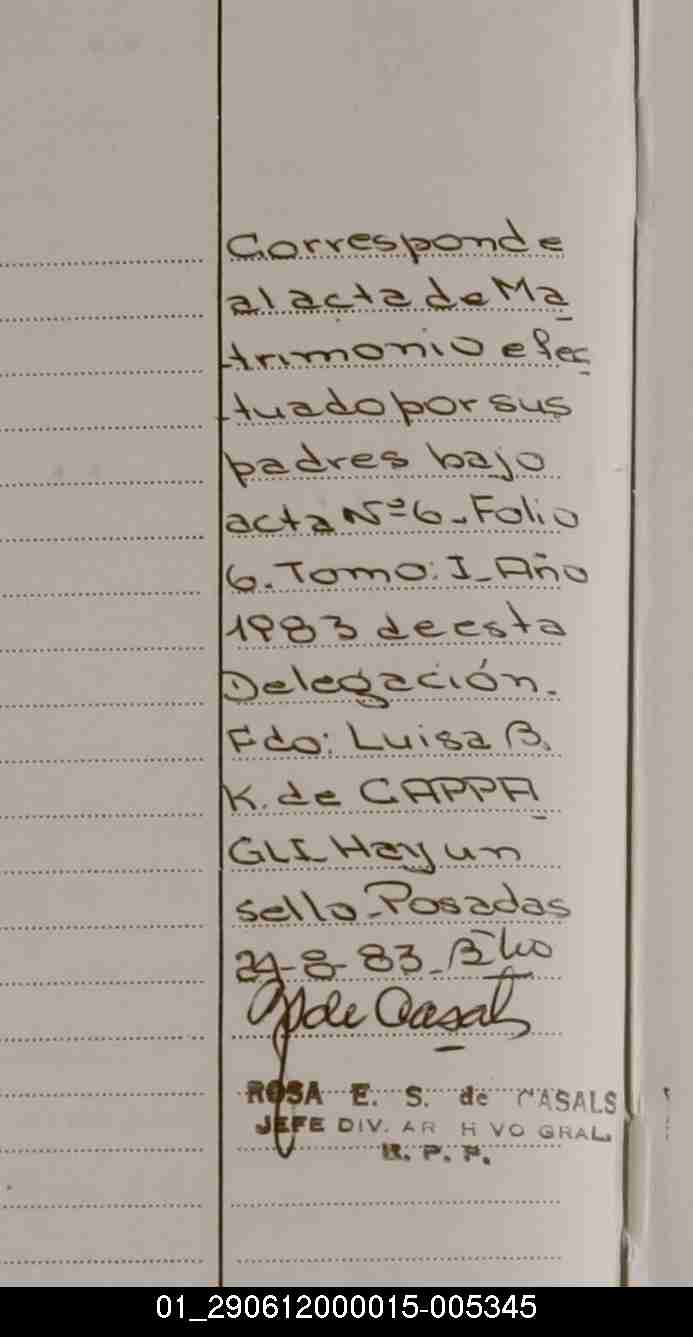 Corresponde
al acta de Ma
trimonio efec
tuado por sus
padres bajo
acta Nº 6. Folio
6. Tomo: I_ Año
1983 de esta
Delegación.
Fdo: Luisa B.
K. de CAPPA
GLI. Hay un
sello_Posadas
-8-83_
de Casals
ROSA E. S. de CASALS
JEFE DIV. AR H VO GRAL.
R. P. P.
01_290612000015-005345